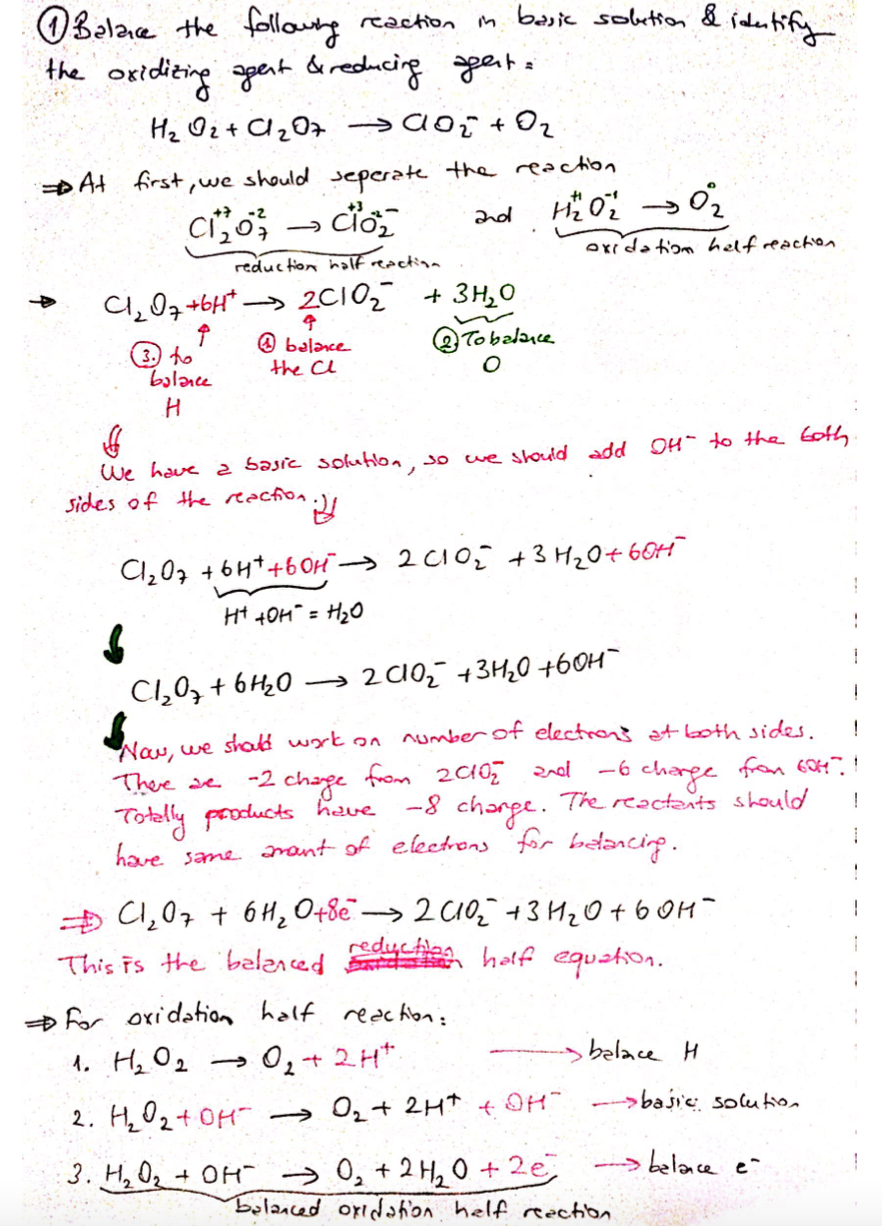 ① Balance the following reaction in basic solution & identify
the oxidizing agent & reducing agent:
H₂O₂ + Cl₂O₇ → ClO₂⁻ + O₂
⇒ At first, we should seperate the reaction
Cl₂⁺⁷O₇⁻² → Cl⁺³O₂⁻²⁻ and H₂⁺¹O₂⁻¹ → O₂⁰
reduction half reaction
oxidation half reaction
→ Cl₂O₇ +6H⁺ → 2ClO₂⁻ + 3H₂O
③. to balance H
① balance the Cl
② To balance O
We have a basic solution, so we should add OH⁻ to the both
sides of the reaction.
Cl₂O₇ + 6H⁺ + 6OH⁻ → 2ClO₂⁻ + 3H₂O + 6OH⁻
H⁺ + OH⁻ = H₂O
Cl₂O₇ + 6H₂O → 2ClO₂⁻ + 3H₂O + 6OH⁻
Now, we should work on number of electrons at both sides.
There are -2 charge from 2ClO₂⁻ and -6 charge from 6OH⁻.
Totally products have -8 charge. The reactants should
have same amant of electrons for balancing.
⇒ Cl₂O₇ + 6H₂O +8e⁻ → 2ClO₂⁻ + 3H₂O + 6OH⁻
This is the balanced reduction half equation.
⇒ For oxidation half reaction:
1. H₂O₂ → O₂ + 2H⁺ → balace H
2. H₂O₂ + OH⁻ → O₂ + 2H⁺ + OH⁻ → basic solution
3. H₂O₂ + OH⁻ → O₂ + 2H₂O + 2e⁻ → balace e⁻
balanced oxidation half reaction